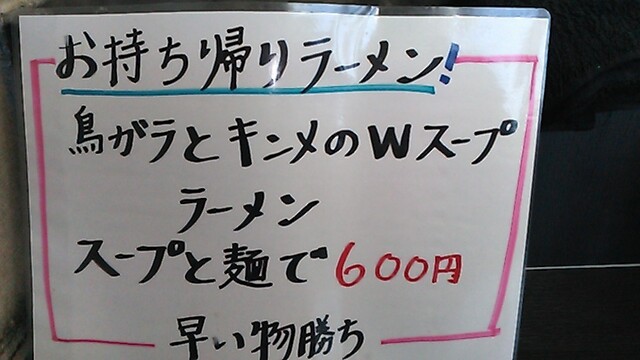 お持ち帰りラーメン!
鳥ガラとキンメのWスープ
ラーメン
スープと麺で600円
早い物勝ち